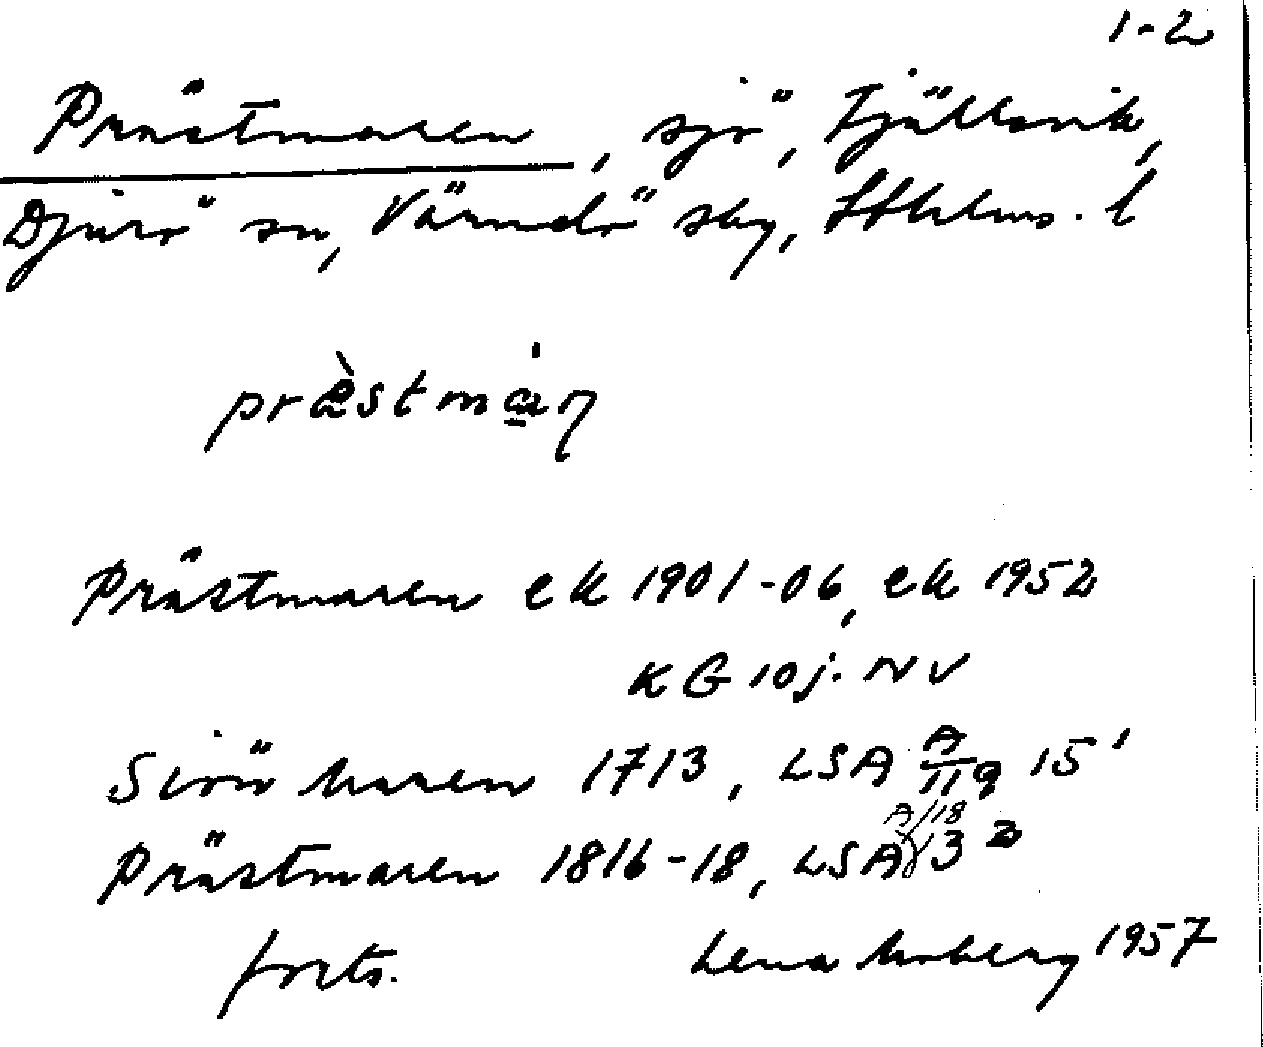 1-2
Prästmaren, sjö, Fjällsvik,
Djurö sn, Värmdö sky, Sthlms. l
præ̀stmȧṇ
Prästmaren ek 1901-06, ek 1952
KG 10 j. NV
Siröö Maren 1713, LSA A/119 15¹
A/18
Prästmaren 1816-18, LSA 3²
forts. Lena Moberg 1957